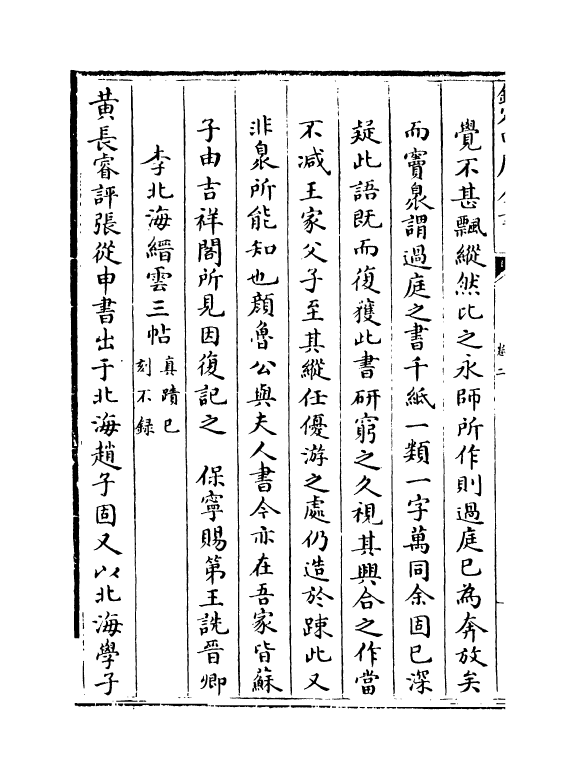 覺不甚飄縱然比之永師所作則過庭已為奔放矣
而竇臮謂過庭之書千紙一類一字萬同余固已深
疑此語既而復獲此書研窮之久視其興合之作當
不減王家父子至其縱任優游之處仍造於疎此又
非臮所能知也顏魯公與夫人書今亦在吾家皆蘇
子由吉祥閣所見因復記之　保寧賜第王詵晉卿
李北海縉雲三帖真蹟已刻不錄
黃長睿評張從申書出于北海趙子固又以北海學子